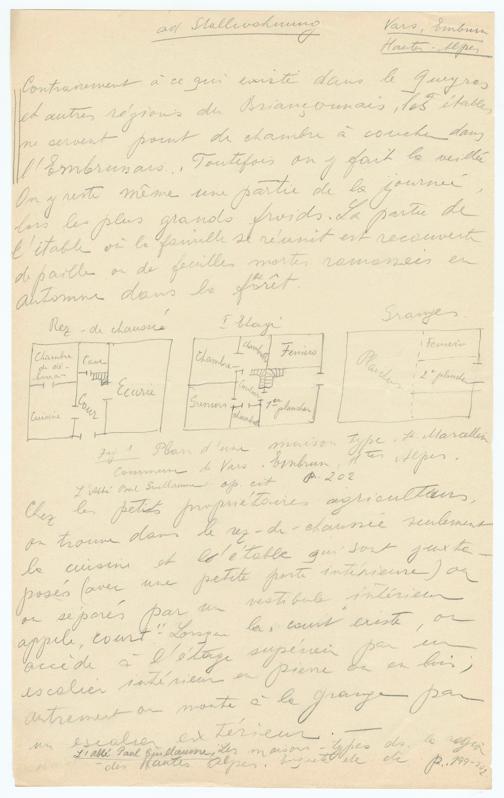 ad Stallwohnung
Vars, Embrun
Hautes-Alpes
Contrairement à ce qui existe dans le Queyras
et autres régions du Briançonnais, les étables
ne servent point de chambre à coucher dans
l'Embrunais. Toutefois on y fait la veillée
On y reste même une partie de la journée,
lors les plus grands froids. La partie de
l'étable où la famille se réunit est recouverte
de paille ou de feuilles mortes ramassées en
automne dans la forêt.
Rez-de-chaussé
I Etage
Granges
Chambre
Cave
Cuisine
Cour
Ecurie
Chambre
chambre
Feniers
Greniers
chambre
1er plancher
Plancher
Fenier
2e plancher
Fig 1 Plan d'une maison type, St. Marcellin
Commune de Vars. Embrun, Htes Alpes.
L'abbé Paul Guillaume op. cit p. 202
Chez les petits propriétaires agriculteurs,
on trouve dans le rez-de-chaussée seulement
la cuisine et l'étable qui sont juxta-
posés (avec une petite porte intérieure) ou
ou séparés par un vestibule intérieur
appelé, court" Lorsque la "court" existe, on
accède à l'étage supérieur par un
escalier intérieur en pierre ou en bois,
autrement on monte à la grange par
un escalier extérieur.
L'abbé Paul Guillaume, Les maisons-types ds. la région
des Hautes Alpes. p. 199-202